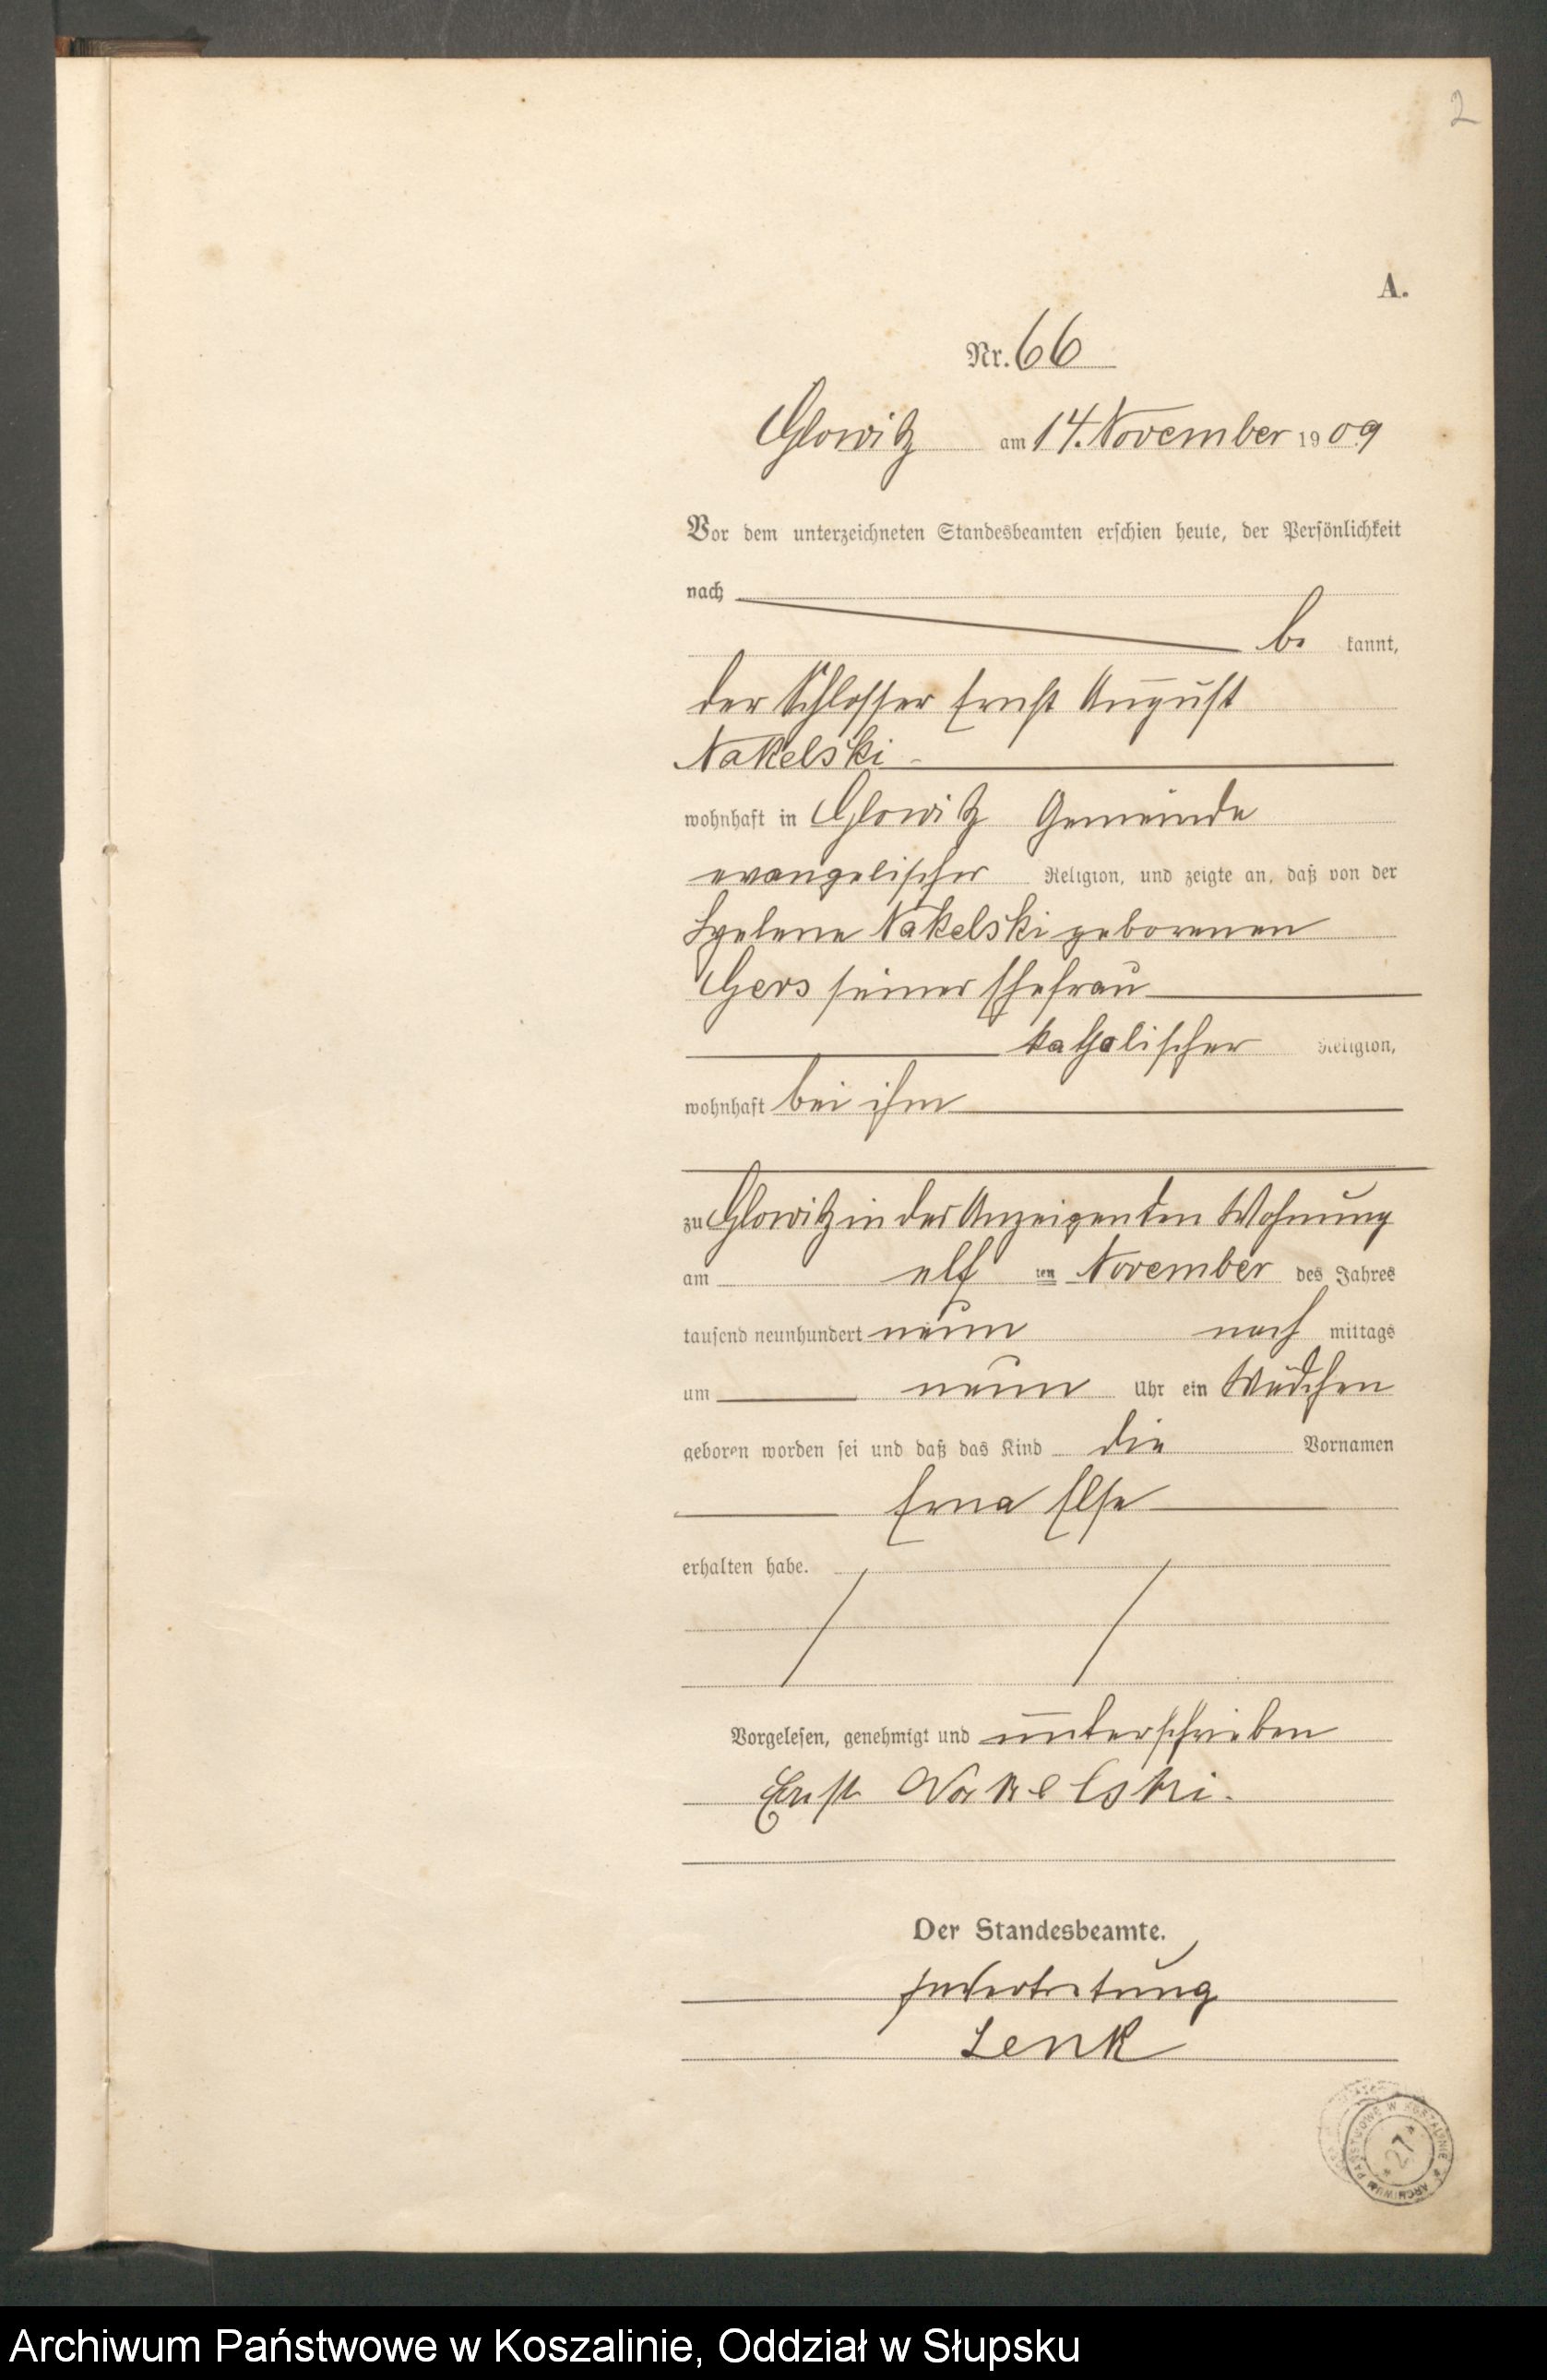 2
A.
Nr. 66
Glowitz am 14. November 1909
Vor dem unterzeichneten Standesbeamten erschien heute, der Persönlichkeit
nach
be kannt,
der Schlosser Ernst August
Nakelski
wohnhaft in Glowitz Gemeinde
evangelischer Religion, und zeigte an, daß von der
Helene Nakelski geborenen
Gers seiner Ehefrau
katholischer Religion,
wohnhaft bei ihm
zu Glowitz in des Anzeigenden Wohnung
am elf ten November des Jahres
tausend neunhundert neun nach mittags
um neun Uhr ein Mädchen
geboren worden sei und daß das Kind die Vornamen
Erna Else
erhalten habe.
Vorgelesen, genehmigt und unterschrieben
Ernst Nakelski.
Der Standesbeamte.
In Vertretung
Lenk
ARCHIWUM PAŃSTWOWE W KOSZALINIE
27
Archiwum Państwowe w Koszalinie, Oddział w Słupsku